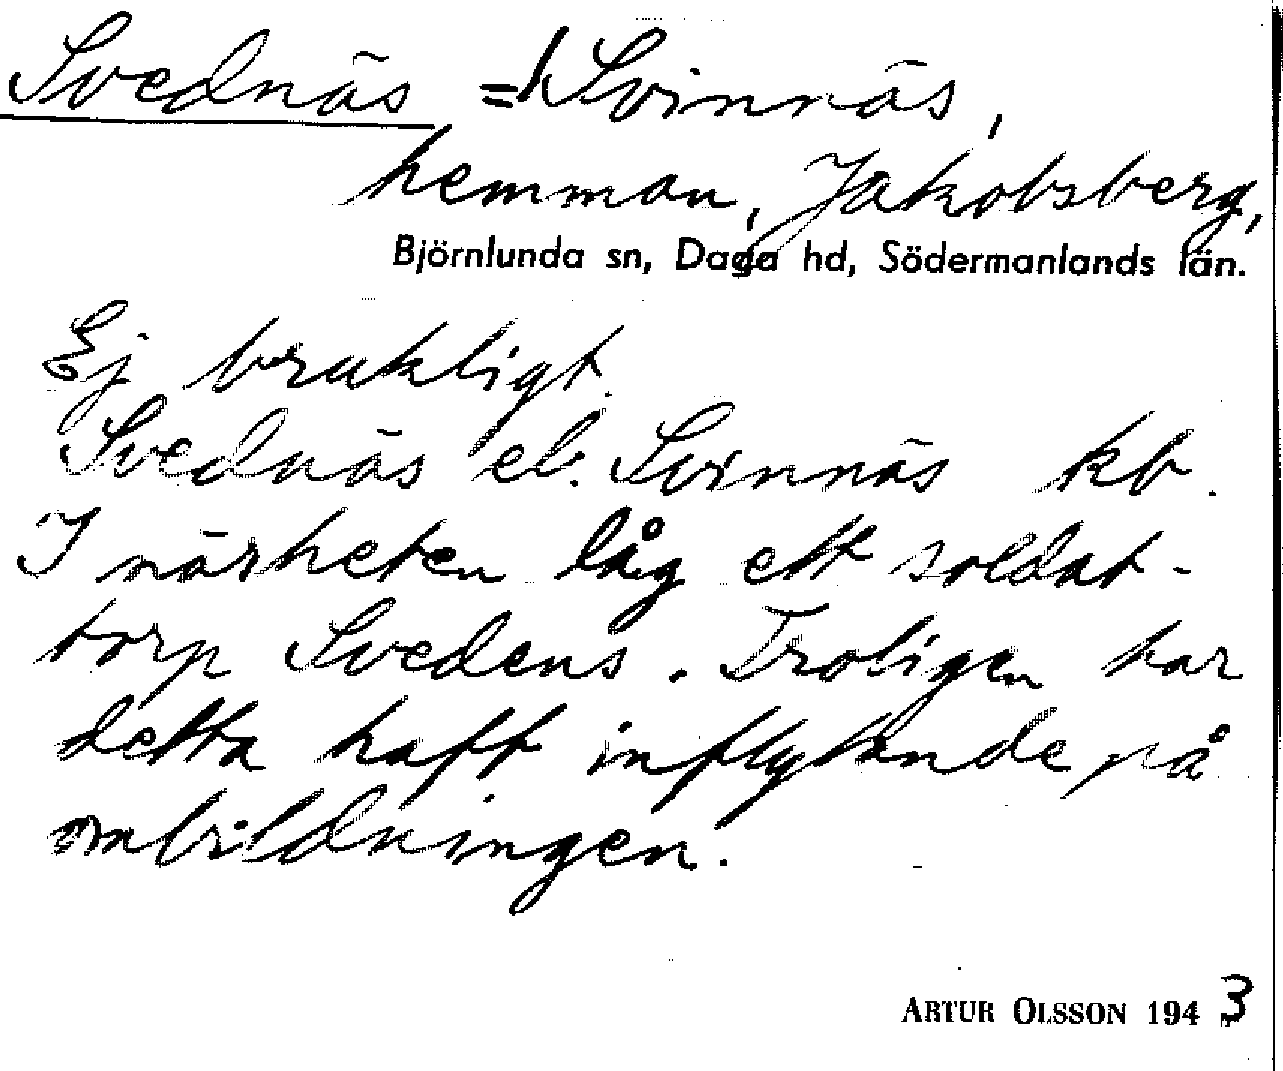 Svednäs = Svinnäs,
hemman, Jakobsberg,
Björnlunda sn, Daga hd, Södermanlands län.
Ej brukligt.
Svednäs el. Svinnäs kb.
I närheten låg ett soldat-
torp Svedens. Troligen har
detta haft inflytande på
ombildningen.
ARTUR OLSSON 1943